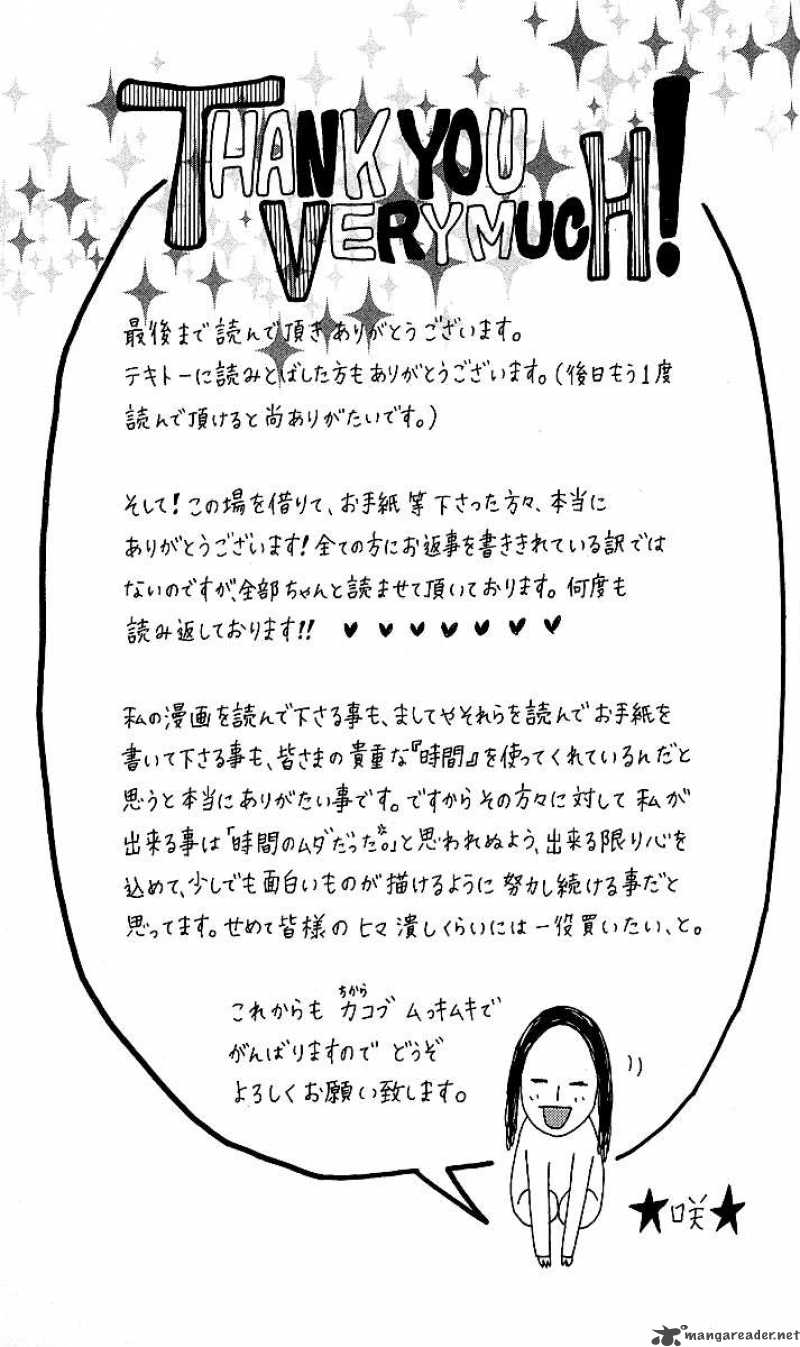 THANK YOU
VERY MUCH!
最後まで読んで頂きありがとうございます。
テキトーに読みとばした方もありがとうございます。(後日もう1度
読んで頂けると尚ありがたいです。)
そして!この場を借りて、お手紙等下さった方々、本当に
ありがとうございます!全ての方にお返事を書ききれている訳では
ないのですが、全部ちゃんと読ませて頂いております。何度も
読み返しております!! ♥ ♥ ♥ ♥ ♥ ♥ ♥
私の漫画を読んで下さる事も、ましてやそれらを読んでお手紙を
書いて下さる事も、皆さまの貴重な『時間』を使ってくれているんだと
思うと本当にありがたい事です。ですからその方々に対して私が
出来る事は「時間のムダだった。」と思われぬよう、出来る限り心を
込めて、少しでも面白いものが描けるように努力し続ける事だと
思ってます。せめて皆様のヒマ潰しくらいには一役買いたい、と。
ちから
これからも力コブムッキムキで
がんばりますのでどうぞ
よろしくお願い致します。
★咲★
mangareader.net